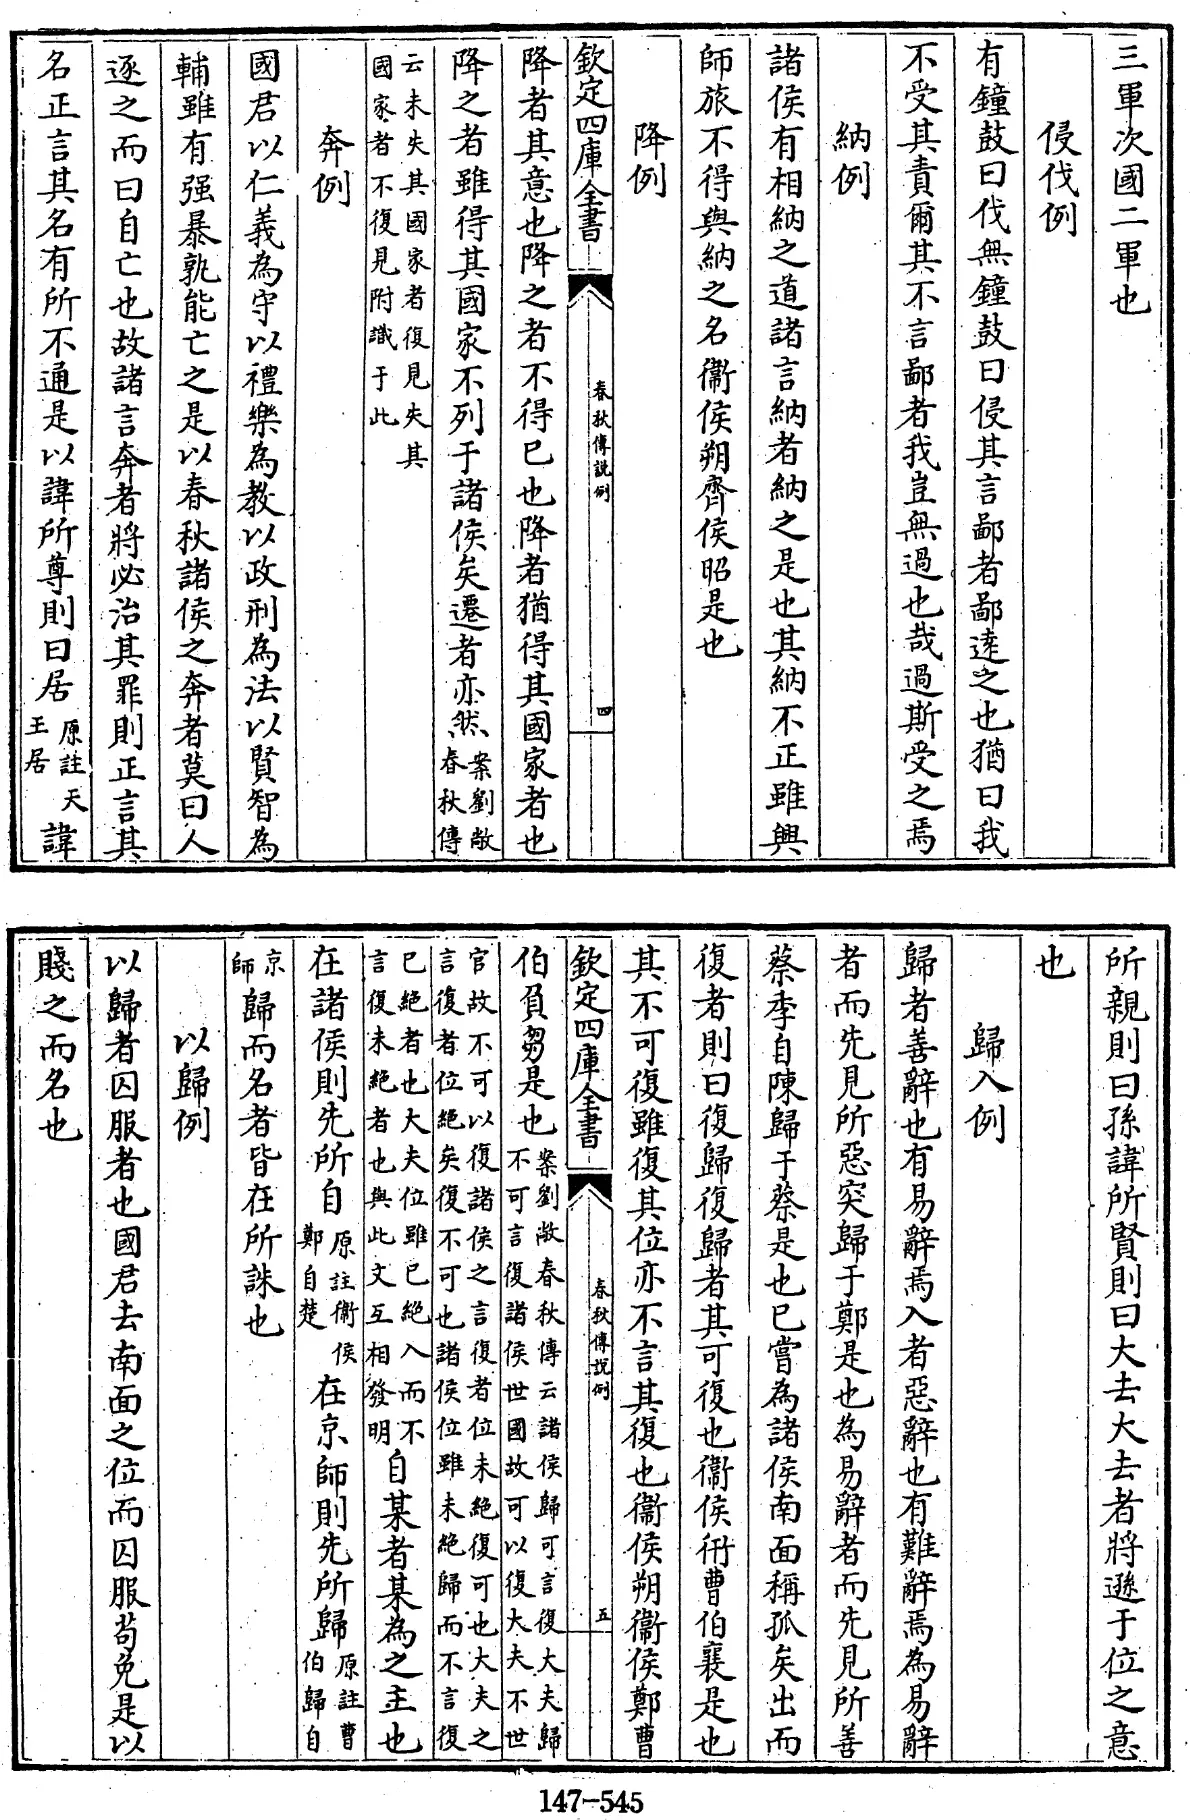 三軍次國二軍也
侵伐例
有鐘鼓曰伐無鐘鼓曰侵其言鄙者鄙遠之也猶曰我
不受其責爾其不言鄙者我豈無過也哉過斯受之焉
納例
諸侯有相納之道諸言納者納之是也其納不正雖興
師旅不得與納之名衞侯朔齊侯昭是也
降例
欽定四庫全書
春秋傳說例
四
降者其意也降之者不得已也降者猶得其國家者也
降之者雖得其國家不列于諸侯矣遷者亦然案劉敞
春秋傳
云未失其國家者復見失其
國家者不復見附識于此
奔例
國君以仁義為守以禮樂為教以政刑為法以賢智為
輔雖有强暴孰能亡之是以春秋諸侯之奔者莫曰人
逐之而曰自亡也故諸言奔者將必治其罪則正言其
名正言其名有所不通是以諱所尊則曰居原註天
王居
諱
所親則曰孫諱所賢則曰大去大去者將遜于位之意
也
歸入例
歸者善辭也有易辭焉入者惡辭也有難辭焉為易辭
者而先見所惡突歸于鄭是也為易辭者而先見所善
蔡季自陳歸于蔡是也已嘗為諸侯南面稱孤矣出而
復者則曰復歸復歸者其可復也衞侯衎曹伯襄是也
其不可復雖復其位亦不言其復也衞侯朔衞侯鄭曹
欽定四庫全書
春秋傳說例
五
伯負芻是也案劉敞春秋傳云諸侯歸可言復大夫歸
不可言復諸侯世國故可以復大夫不世
官故不可以復諸侯之言復者位未絕復可也大夫之
言復者位絕矣復不可也諸侯位雖未絕歸而不言復
已絕者也大夫位雖已絕入而不
言復未絕者也與此文互相發明
自某者某為之主也
在諸侯則先所自原註衞侯
鄭自楚
在京師則先所歸原註曹
伯歸自
京
師
歸而名者皆在所誅也
以歸例
以歸者囚服者也國君去南面之位而囚服苟免是以
賤之而名也
147-545